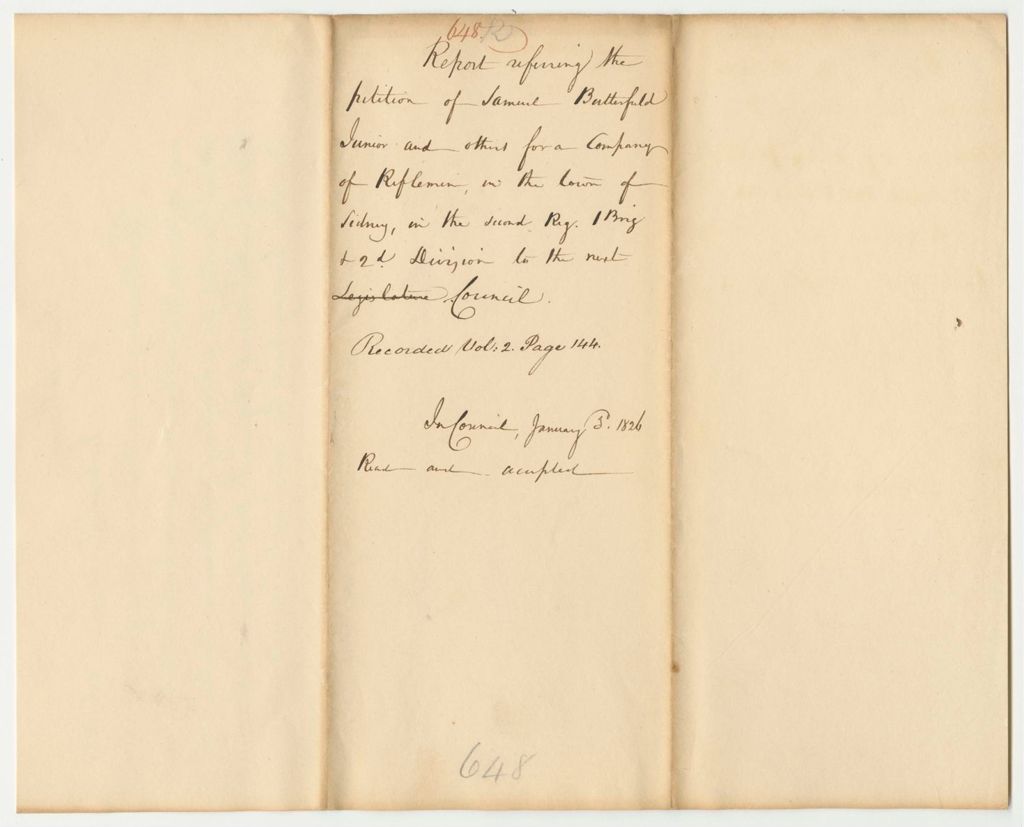 648
Report referring the
petition of Samuel Butterfield
Junior and others for a Company
of Riflemen, in the town of
Sidney, in the second Reg. 1 Brig
& 2d Division to the next
Legislature Council.
Recorded Vol: 2. Page 144.
In Council, January 3. 1826
Read and accepted
648